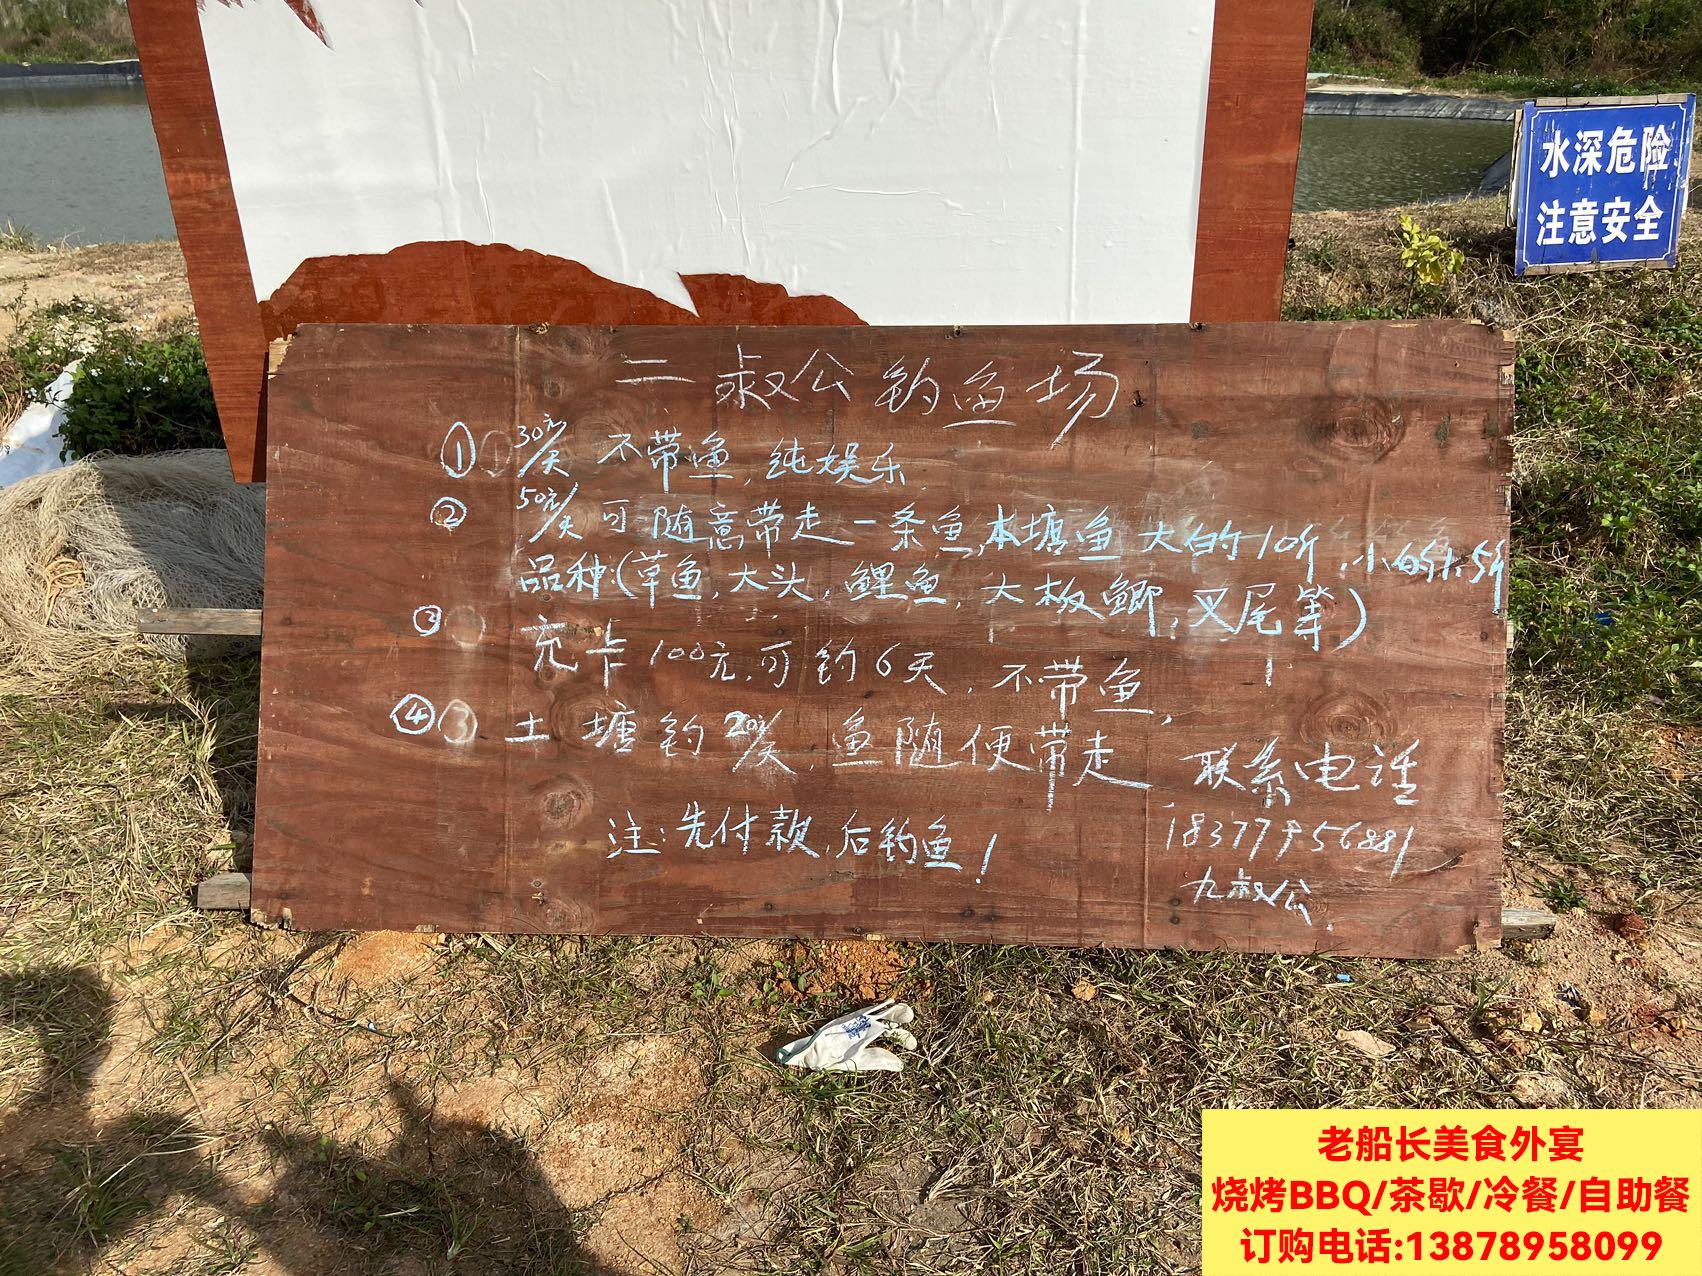 水深危险
注意安全
二叔公钓鱼场
① 30元/天 不带鱼,纯娱乐
② 50元/天 可随意带走一条鱼,本塘鱼大的10斤,小的1.5斤
品种:(草鱼,大头,鲤鱼,大板鲫,叉尾等)
③ 充卡100元,可钓6天,不带鱼,
④ 土塘钓20元/天,鱼随便带走
联系电话
注:先付款,后钓鱼!
九叔公
老船长美食外宴
烧烤BBQ/茶歇/冷餐/自助餐
订购电话:13878958099